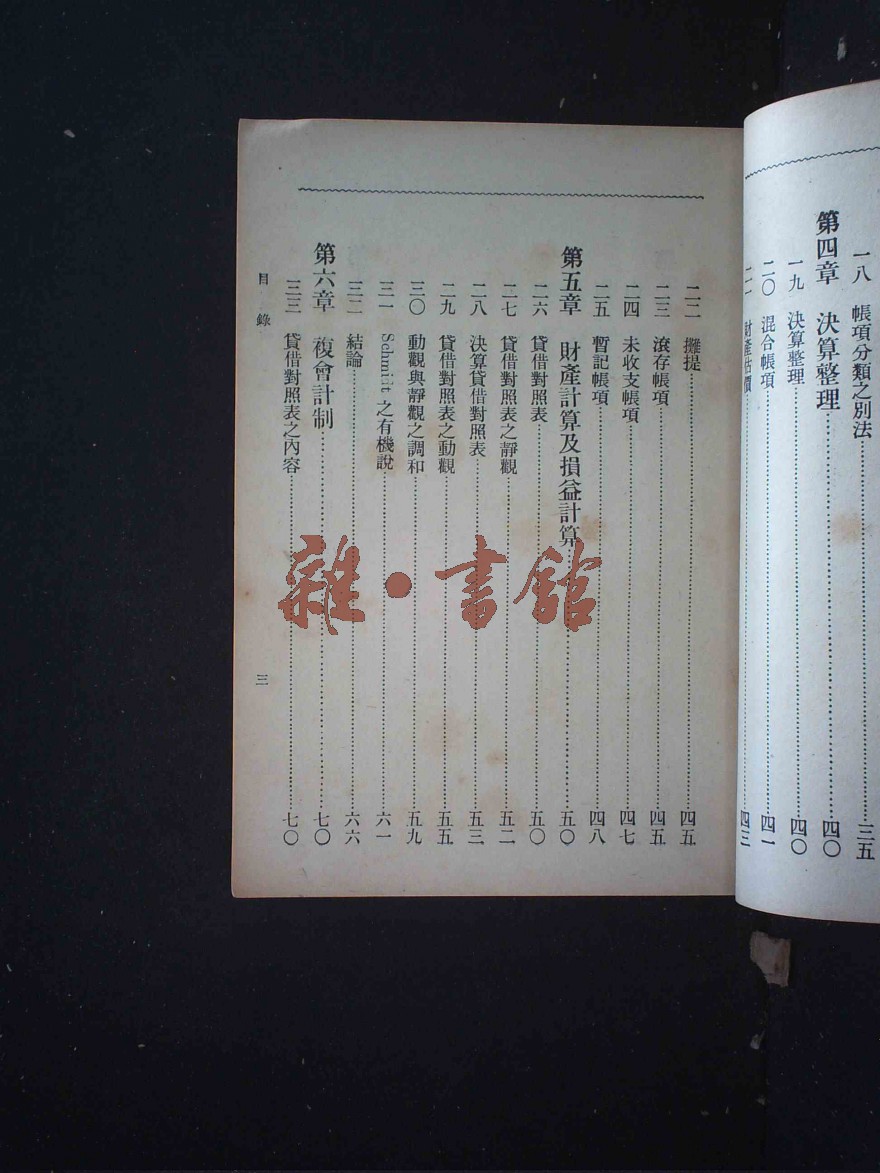 一八　帳項分類之別法……三五
第四章　決算整理……四〇
一九　決算整理……四〇
二〇　混合帳項……四一
二一　財產估價……四三
二二　攤提……四五
二三　滾存帳項……四五
二四　未收支帳項……四七
二五　暫記帳項……四八
第五章　財產計算及損益計算……五〇
二六　貸借對照表……五〇
二七　貸借對照表之靜觀……五二
二八　決算貸借對照表……五三
二九　貸借對照表之動觀……五五
三〇　動觀與靜觀的調和……五九
三一　Schmidt 之有機說……六一
三二　結論……六六
第六章　複會計制……七〇
三三　貸借對照表之內容……七〇
目錄　三
雜·書館